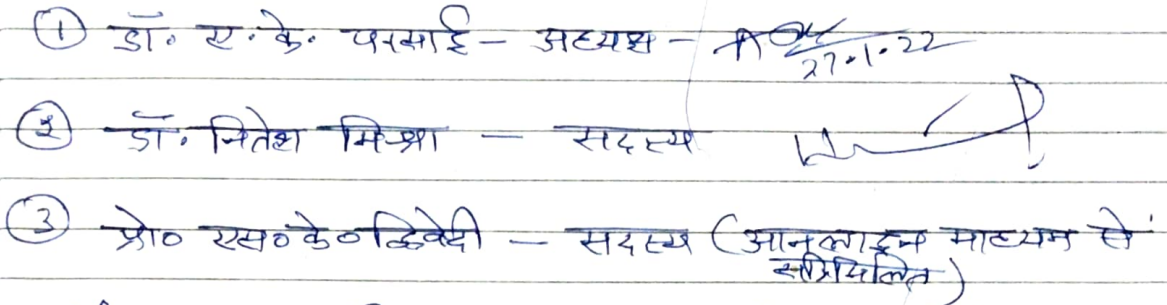 ① डॉ. ए. के. परसाई - अध्यक्ष - 27.1.22
② डॉ. नितेश मिश्रा - सदस्य
③ प्रो० एस० के० द्विवेदी - सदस्य (आनलाइन माध्यम से
सम्मिलित)